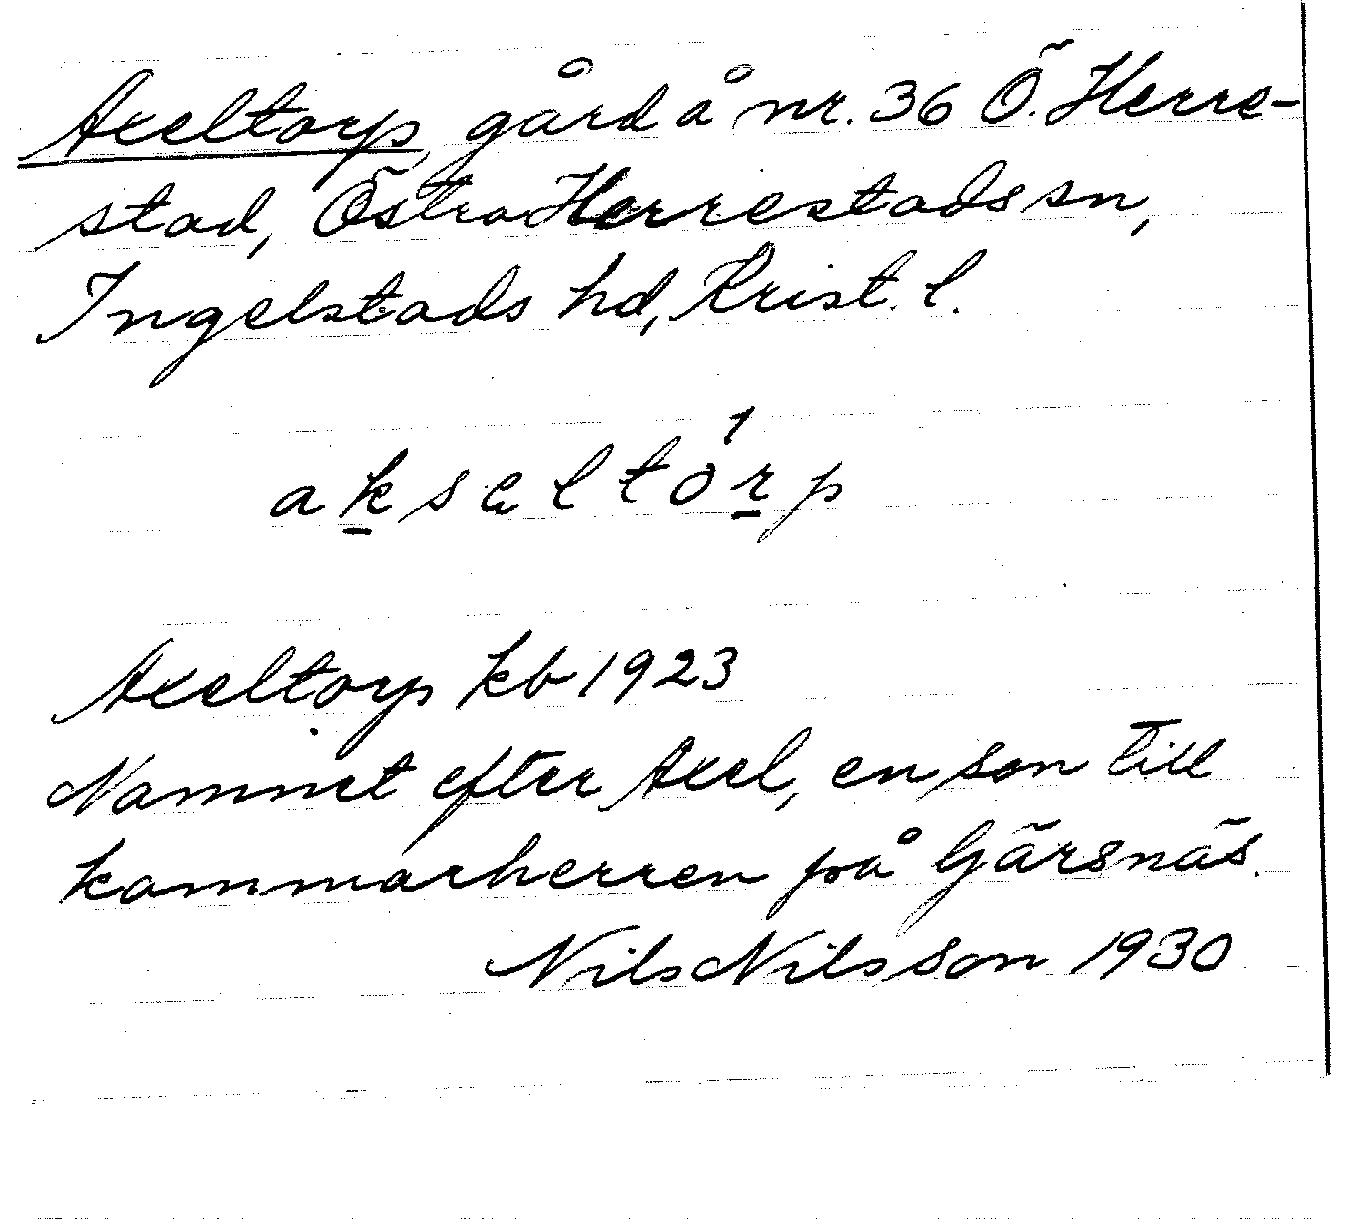 Axeltorp, gård å nr. 36 Ö. Herre-
stad, Östra Herrestads sn,
Ingelstads hd, Krist. l.
aksęltó1rp
Axeltorp kb 1923
Namnet efter Axel, en son till
kammarherren på Gärsnäs.
Nils Nilsson 1930